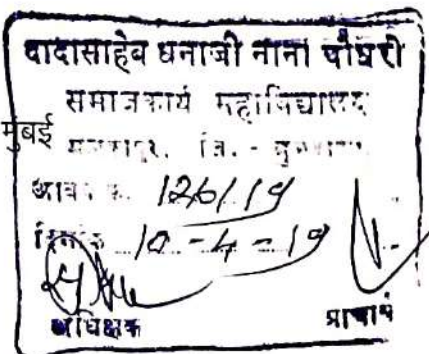 दादासाहेब धनाजी नाना चौधरी
समाजकार्य महाविद्यालय
मुंबई
मलकापूर, जि. - बुलडाणा
आवक क्र. 126/19
दिनांक 10-4-19
अधिक्षक प्राचार्य